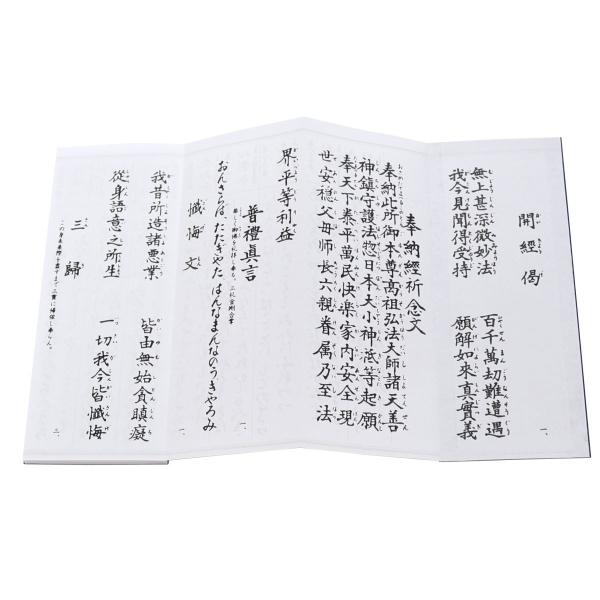 開經偈
無上甚深微妙法 百千萬劫難遭遇
我今見聞得受持 願解如来真實義
一、
奉納經祈念文
奉納此所御本尊高祖弘法大師諸天善
神鎮守護法惣日本大小神祇等起願
奉天下泰平萬民快楽家内安全現
世安穏父母師長六親眷属乃至法
界平等利益
普禮真言
おんさらば たたぎやた はんなまんなのうきやろみ
一、
懺悔文
我昔所造諸悪業 皆由無始貪瞋癡
從身語意之所生 一切我今皆懺悔
三歸
二、